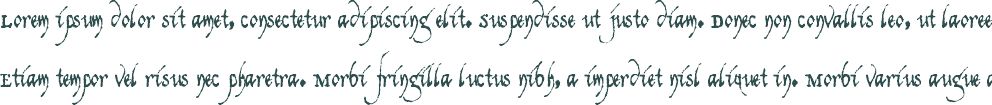 Lorem ipsum dolor sit amet, consectetur adipiscing elit. Suspendisse ut justo diam. Donec non convallis leo, ut laoree
Etiam tempor vel risus nec pharetra. Morbi fringilla luctus nibh, a imperdiet nisl aliquet in. Morbi varius augue a